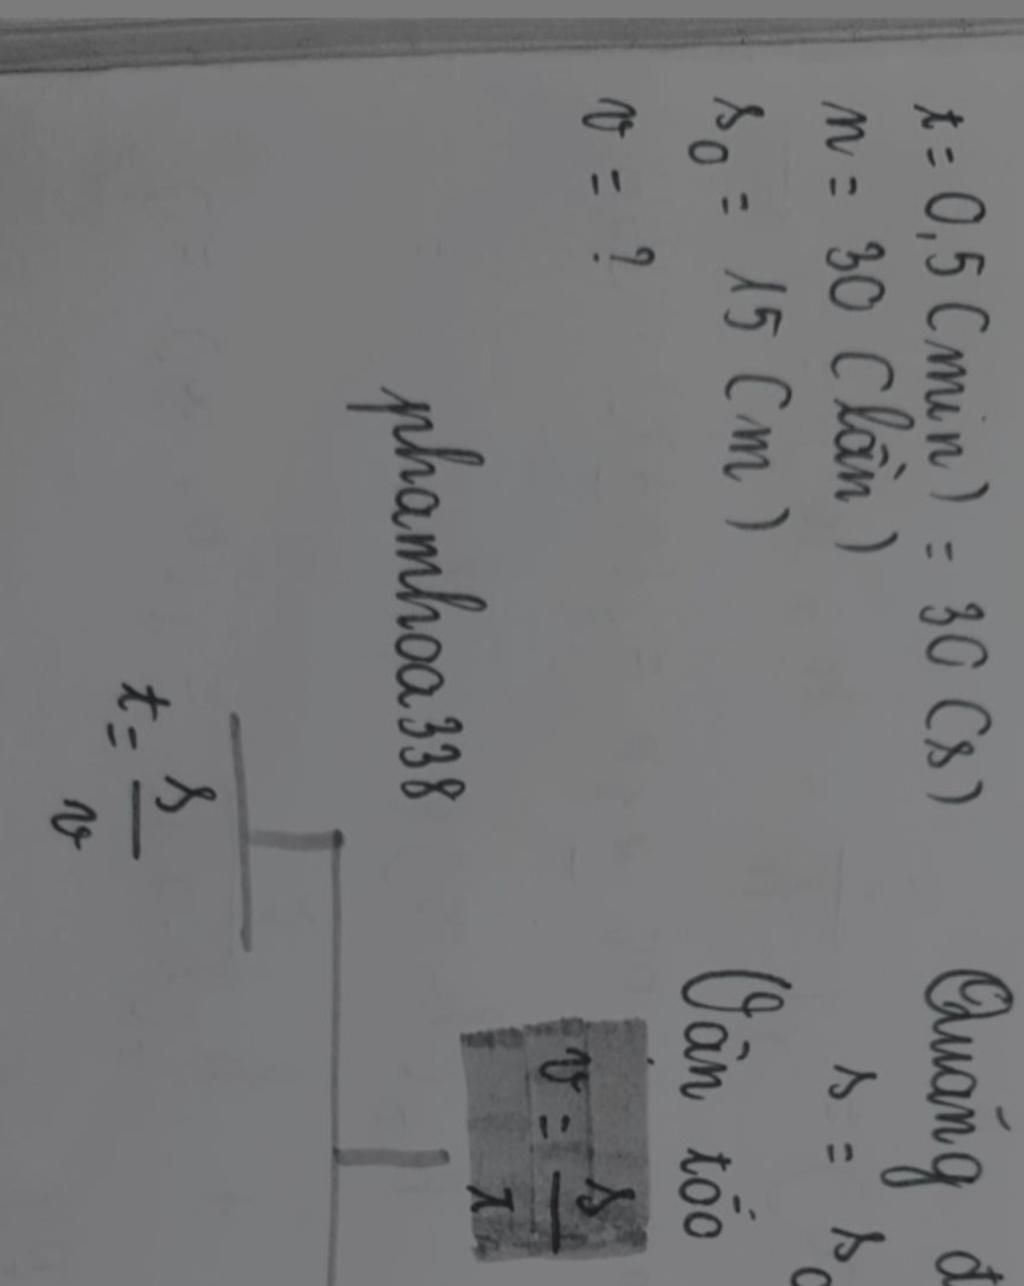 t = 0,5 (min) = 30 (s)
n = 30 (lần)
s₀ = 15 (m)
v = ?
phamhoa338
Quãng đ
s = s₀
Vận tốc
v = s/t
t = s/v